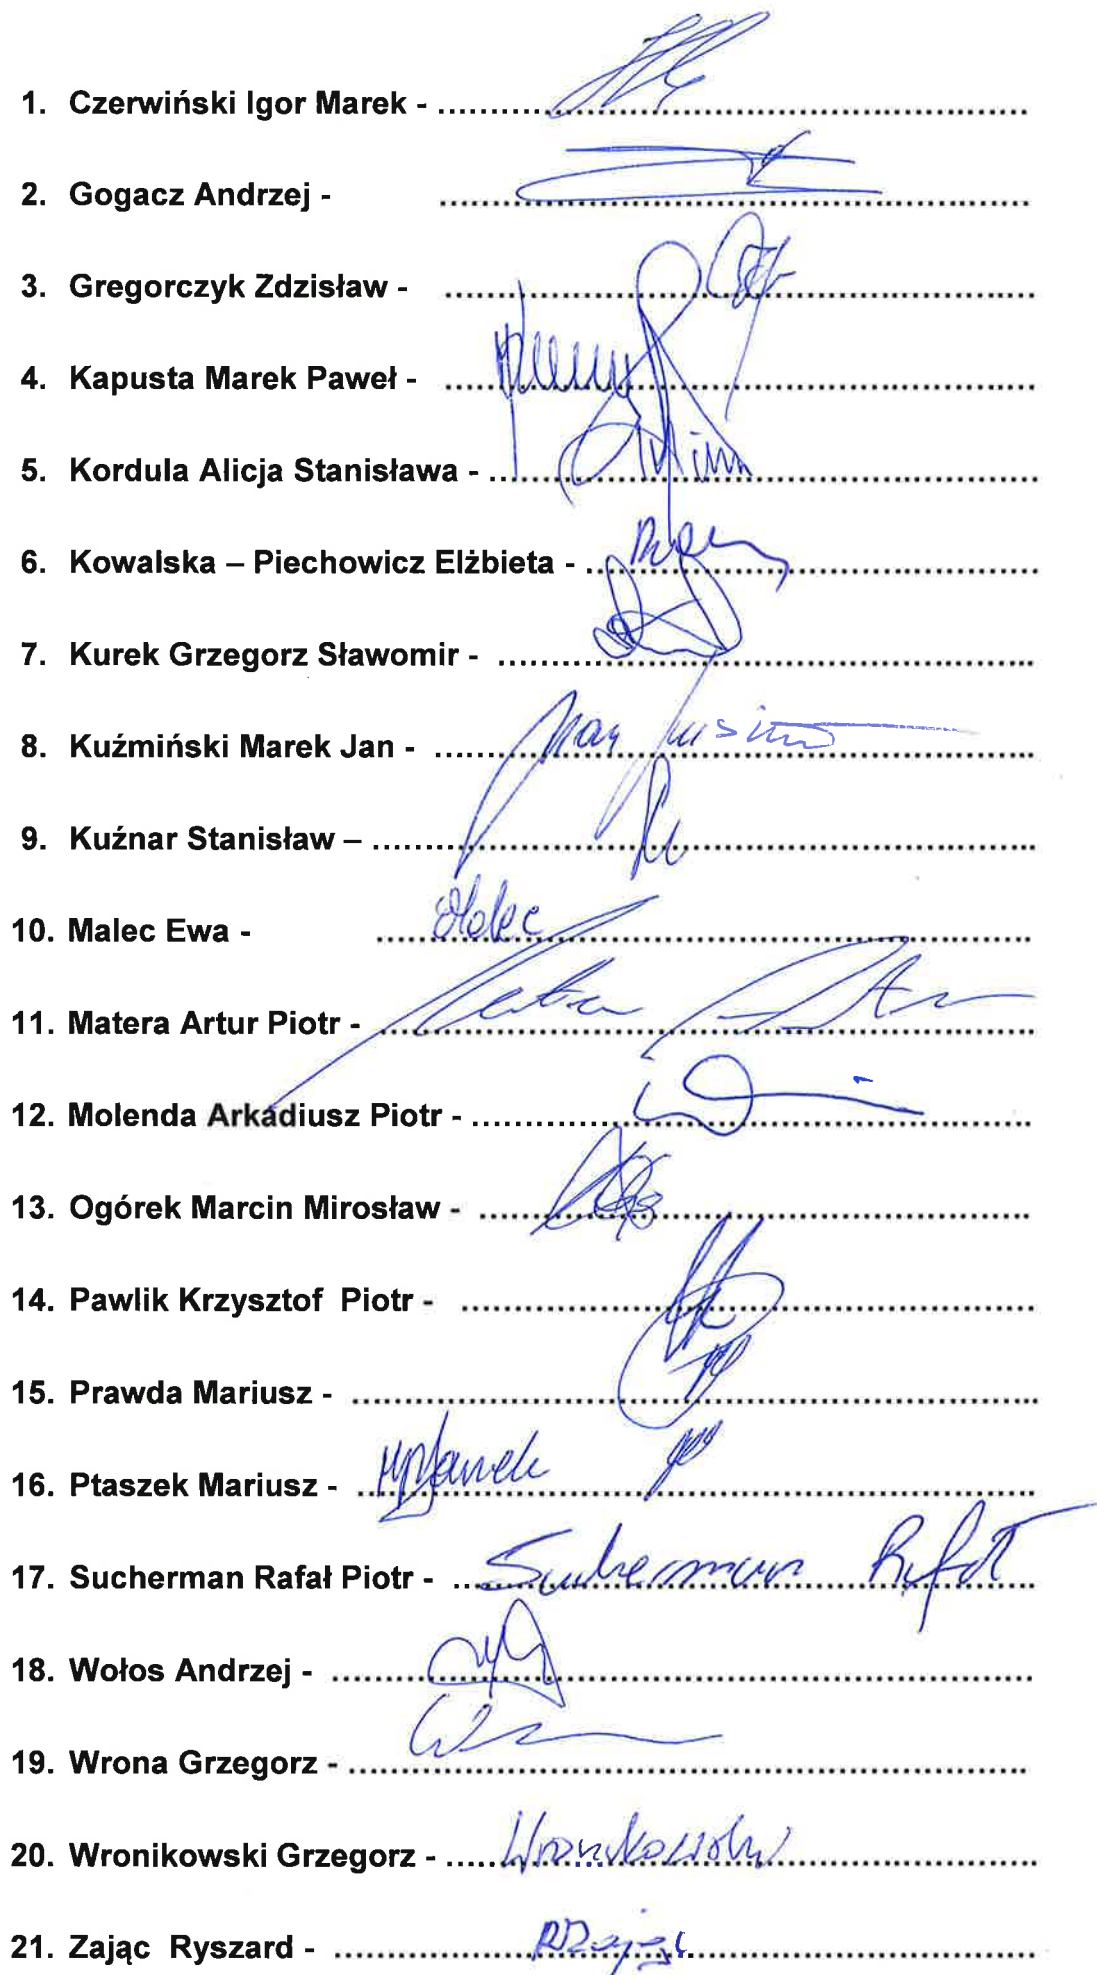 1. Czerwiński Igor Marek - ..........
2. Gogacz Andrzej - ..........
3. Gregorczyk Zdzisław - ..........
4. Kapusta Marek Paweł - ..........
5. Kordula Alicja Stanisława - ..........
6. Kowalska – Piechowicz Elżbieta - ..........
7. Kurek Grzegorz Sławomir - ..........
8. Kuźmiński Marek Jan - ..........
9. Kuźnar Stanisław – ..........
10. Malec Ewa - .......... Malec
11. Matera Artur Piotr - ..........
12. Molenda Arkadiusz Piotr - ..........
13. Ogórek Marcin Mirosław - ..........
14. Pawlik Krzysztof Piotr - ..........
15. Prawda Mariusz - ..........
16. Ptaszek Mariusz - ..........
17. Sucherman Rafał Piotr - .......... Sucherman Rafał
18. Wołos Andrzej - ..........
19. Wrona Grzegorz - ..........
20. Wronikowski Grzegorz - .......... Wronikowski
21. Zając Ryszard - .......... RZając